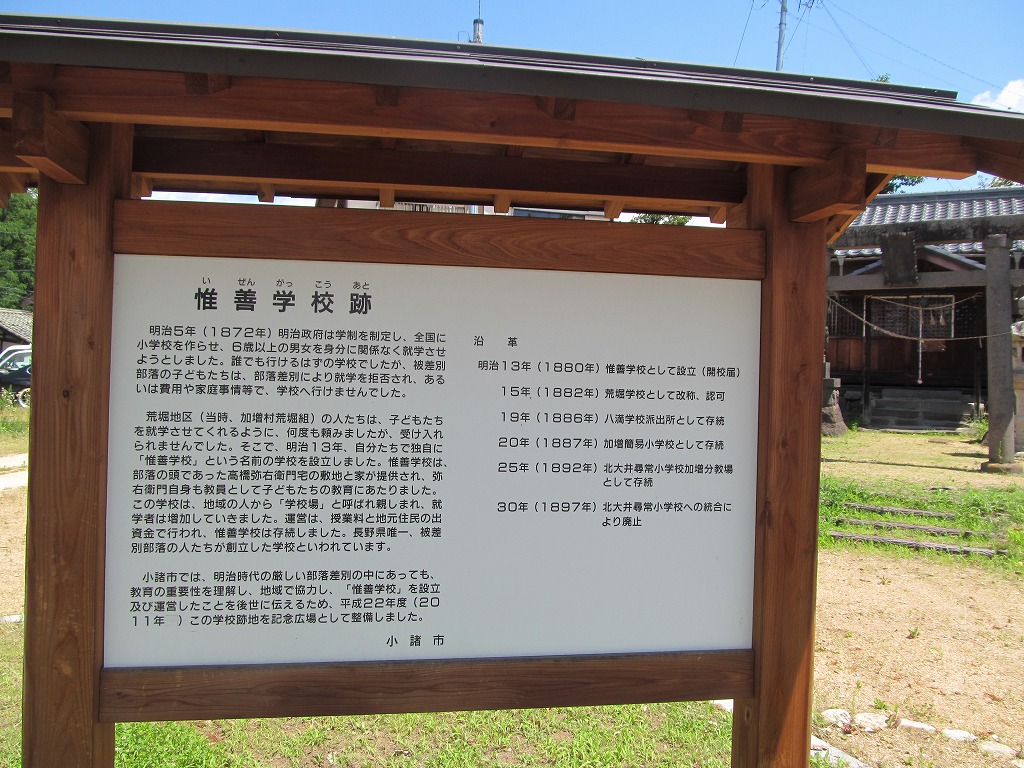 い ぜん がっ こう あと
惟善学校跡
明治5年（1872年）明治政府は学制を制定し、全国に
小学校を作らせ、6歳以上の男女を身分に関係なく就学させ
ようとしました。誰でも行けるはずの学校でしたが、被差別
部落の子どもたちは、部落差別により就学を拒否され、ある
いは費用や家庭事情等で、学校へ行けませんでした。
荒堀地区（当時、加増村荒堀組）の人たちは、子どもたち
を就学させてくれるように、何度も頼みましたが、受け入れ
られませんでした。そこで、明治13年、自分たちで独自に
「惟善学校」という名前の学校を設立しました。惟善学校は、
部落の頭であった高橋弥右衛門宅の敷地と家が提供され、弥
右衛門自身も教員として子どもたちの教育にあたりました。
この学校は、地域の人から「学校場」と呼ばれ親しまれ、就
学者は増加していきました。運営は、授業料と地元住民の出
資金で行われ、惟善学校は存続しました。長野県唯一、被差
別部落の人たちが創立した学校といわれています。
小諸市では、明治時代の厳しい部落差別の中にあっても、
教育の重要性を理解し、地域で協力し、「惟善学校」を設立
及び運営したことを後世に伝えるため、平成22年度（20
11年　）この学校跡地を記念広場として整備しました。
小諸市
沿　革
明治13年（1880年）惟善学校として設立（開校届）
15年（1882年）荒堀学校として改称、認可
19年（1886年）八満学校派出所として存続
20年（1887年）加増簡易小学校として存続
25年（1892年）北大井尋常小学校加増分教場
として存続
30年（1897年）北大井尋常小学校への統合に
より廃止